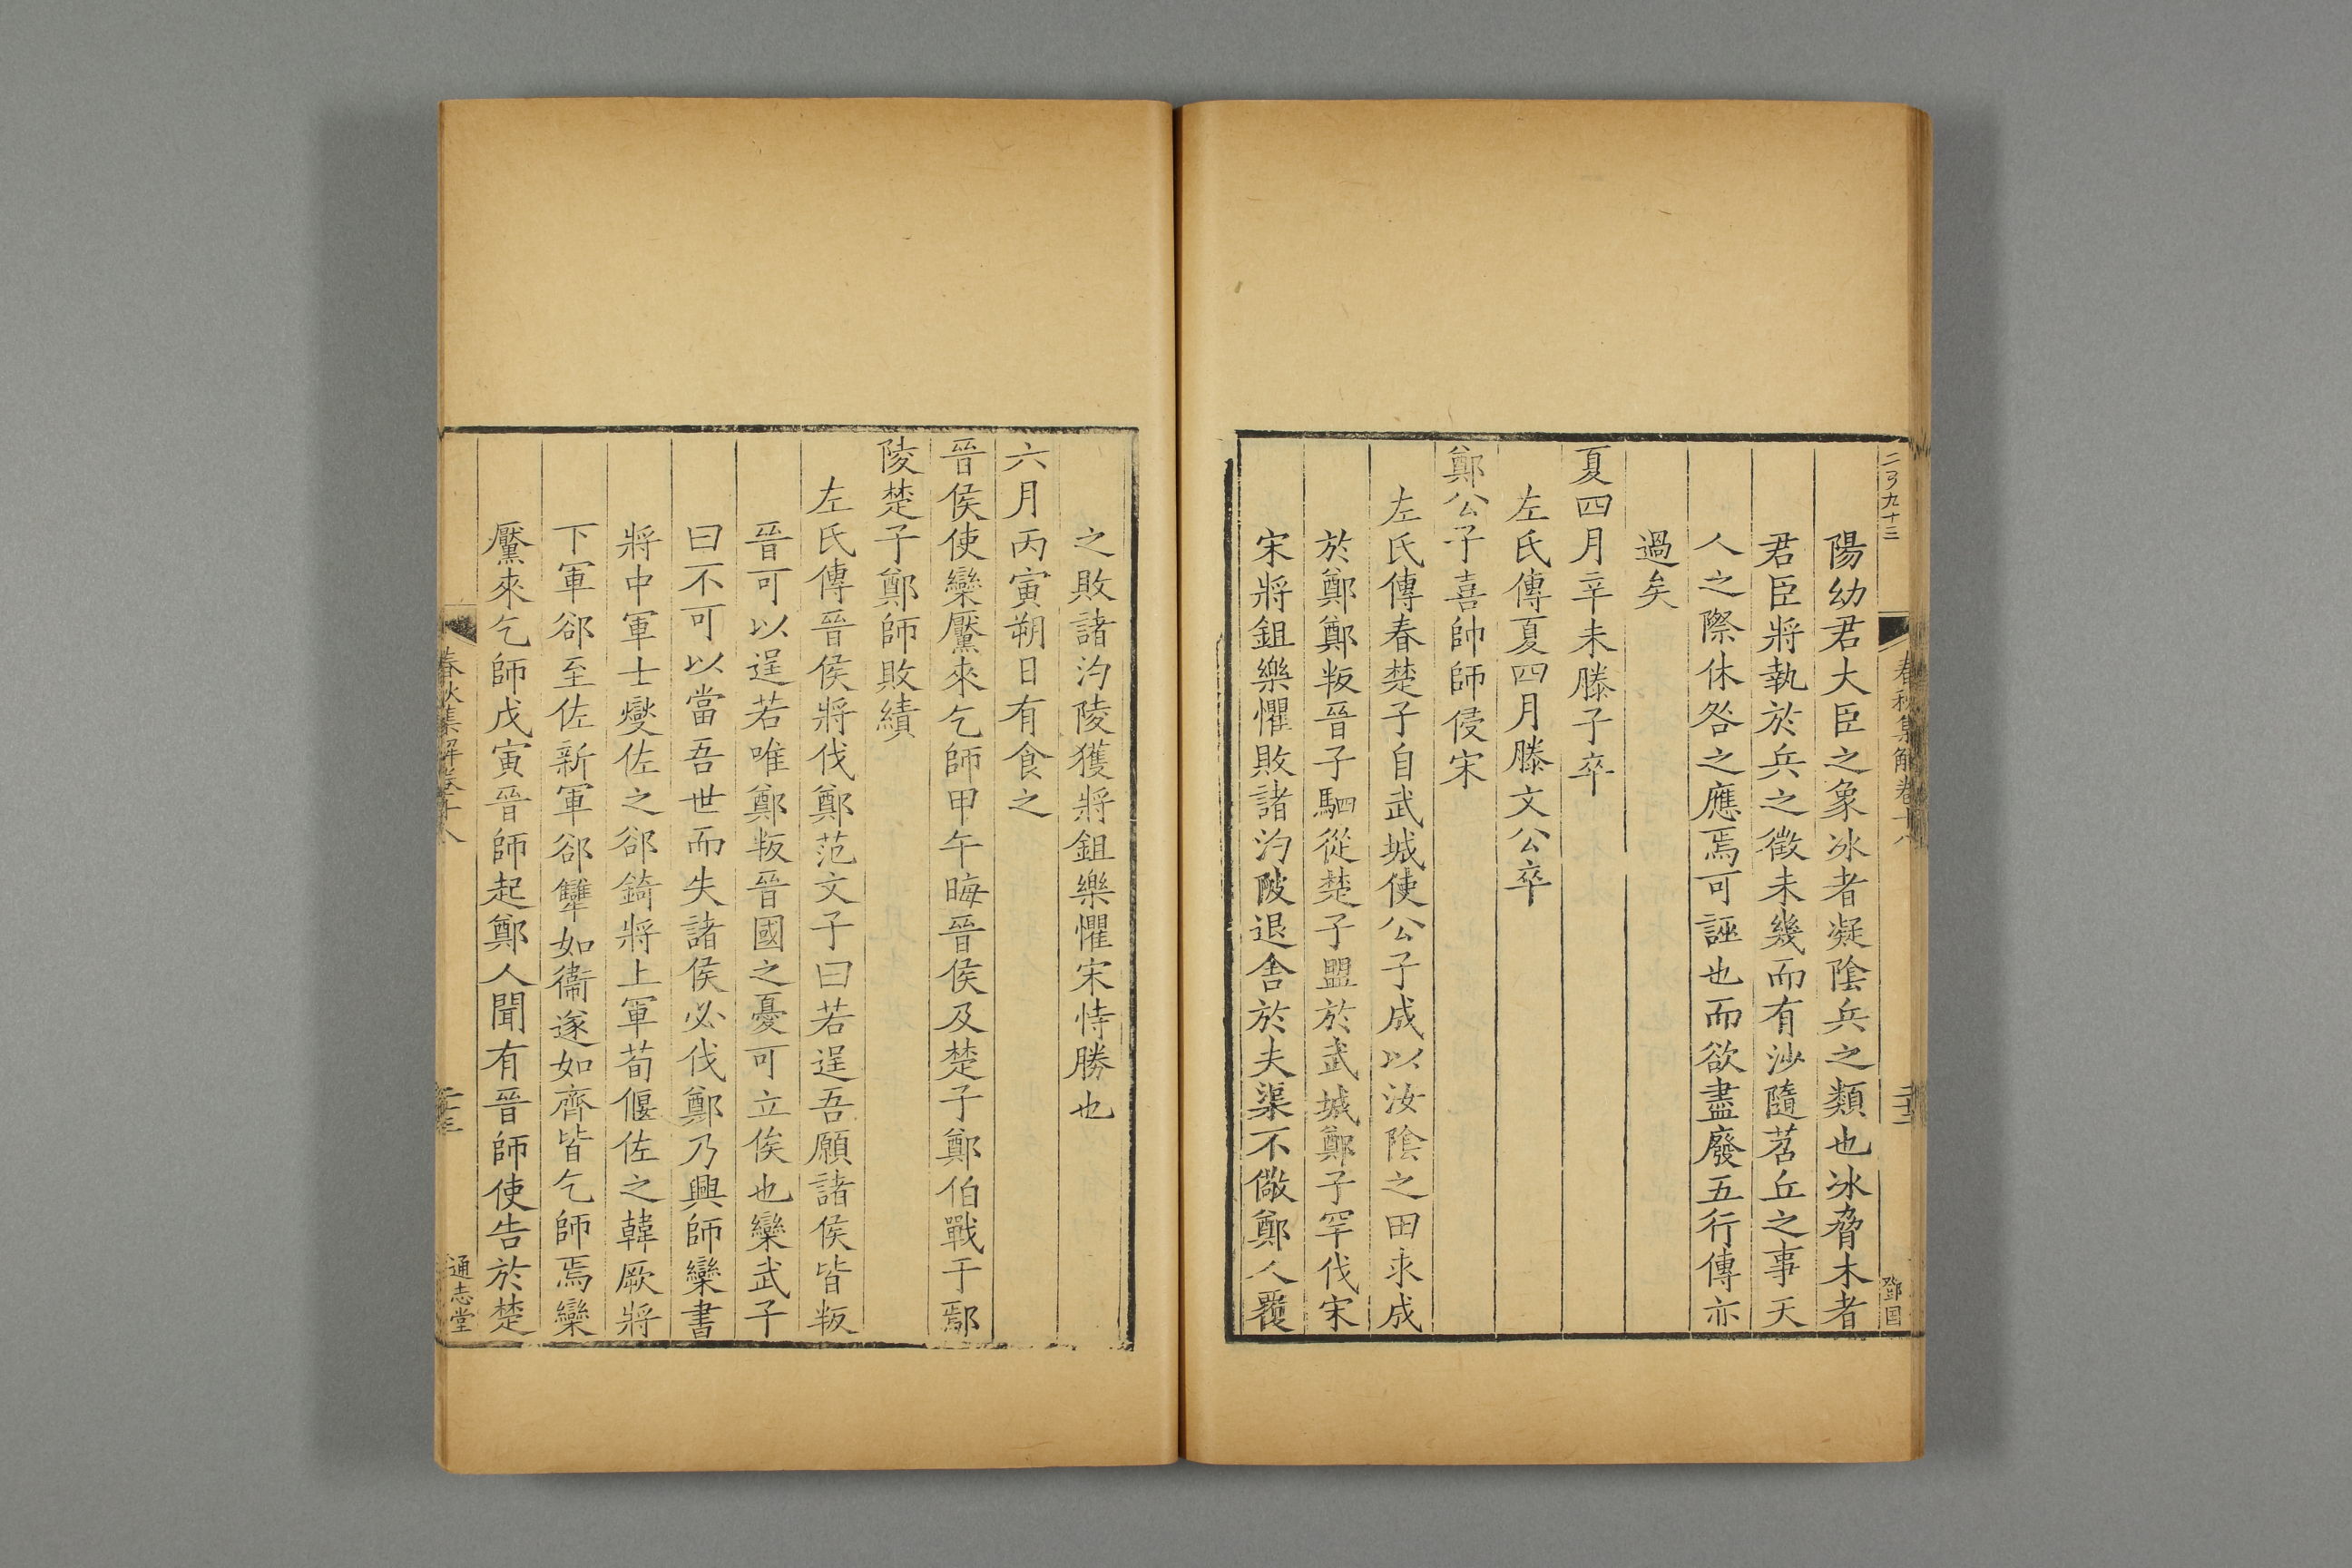 二百九十三
春秋集解卷十八
二十二
鄧国
陽幼君大臣之象冰者凝陰兵之類也冰脅木者
君臣將執於兵之徵未幾而有沙隨苕丘之事天
人之際休咎之應焉可誣也而欲盡廢五行傳亦
過矣
夏四月辛未滕子卒
左氏傳夏四月滕文公卒
鄭公子喜帥師侵宋
左氏傳春楚子自武城使公子成以汝陰之田求成
於鄭鄭叛晉子駟從楚子盟於武城鄭子罕伐宋
宋將鉏樂懼敗諸汋陂退舍於夫渠不儆鄭人覆
之敗諸汋陵獲將鉏樂懼宋恃勝也
六月丙寅朔日有食之
晉侯使欒黶來乞師甲午晦晉侯及楚子鄭伯戰于鄢
陵楚子鄭師敗績
左氏傳晉侯將伐鄭范文子曰若逞吾願諸侯皆叛
晉可以逞若唯鄭叛晉國之憂可立俟也欒武子
曰不可以當吾世而失諸侯必伐鄭乃興師欒書
將中軍士燮佐之郤錡將上軍荀偃佐之韓厥將
下軍郤至佐新軍郤犨如衞遂如齊皆乞師焉欒
黶來乞師戊寅晉師起鄭人聞有晉師使告於楚
春秋集解卷十八
二十三
通志堂